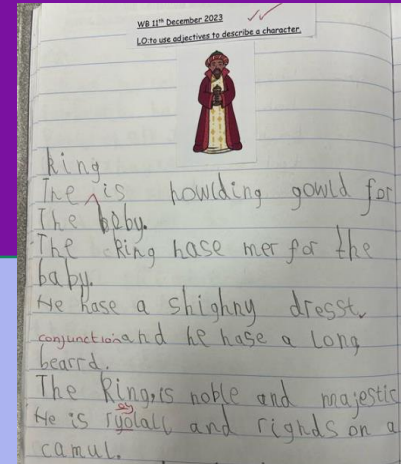 WB 11th December 2023
LO:to use adjectives to describe a character.
king
The is howlding gowld for
The beby.
The king hase mer for the
baby.
He hase a shighny dresst
conjunction and he hase a long
bearrd.
The King is noble and majestic
oy
He is ryolall and rignds on a
camul.